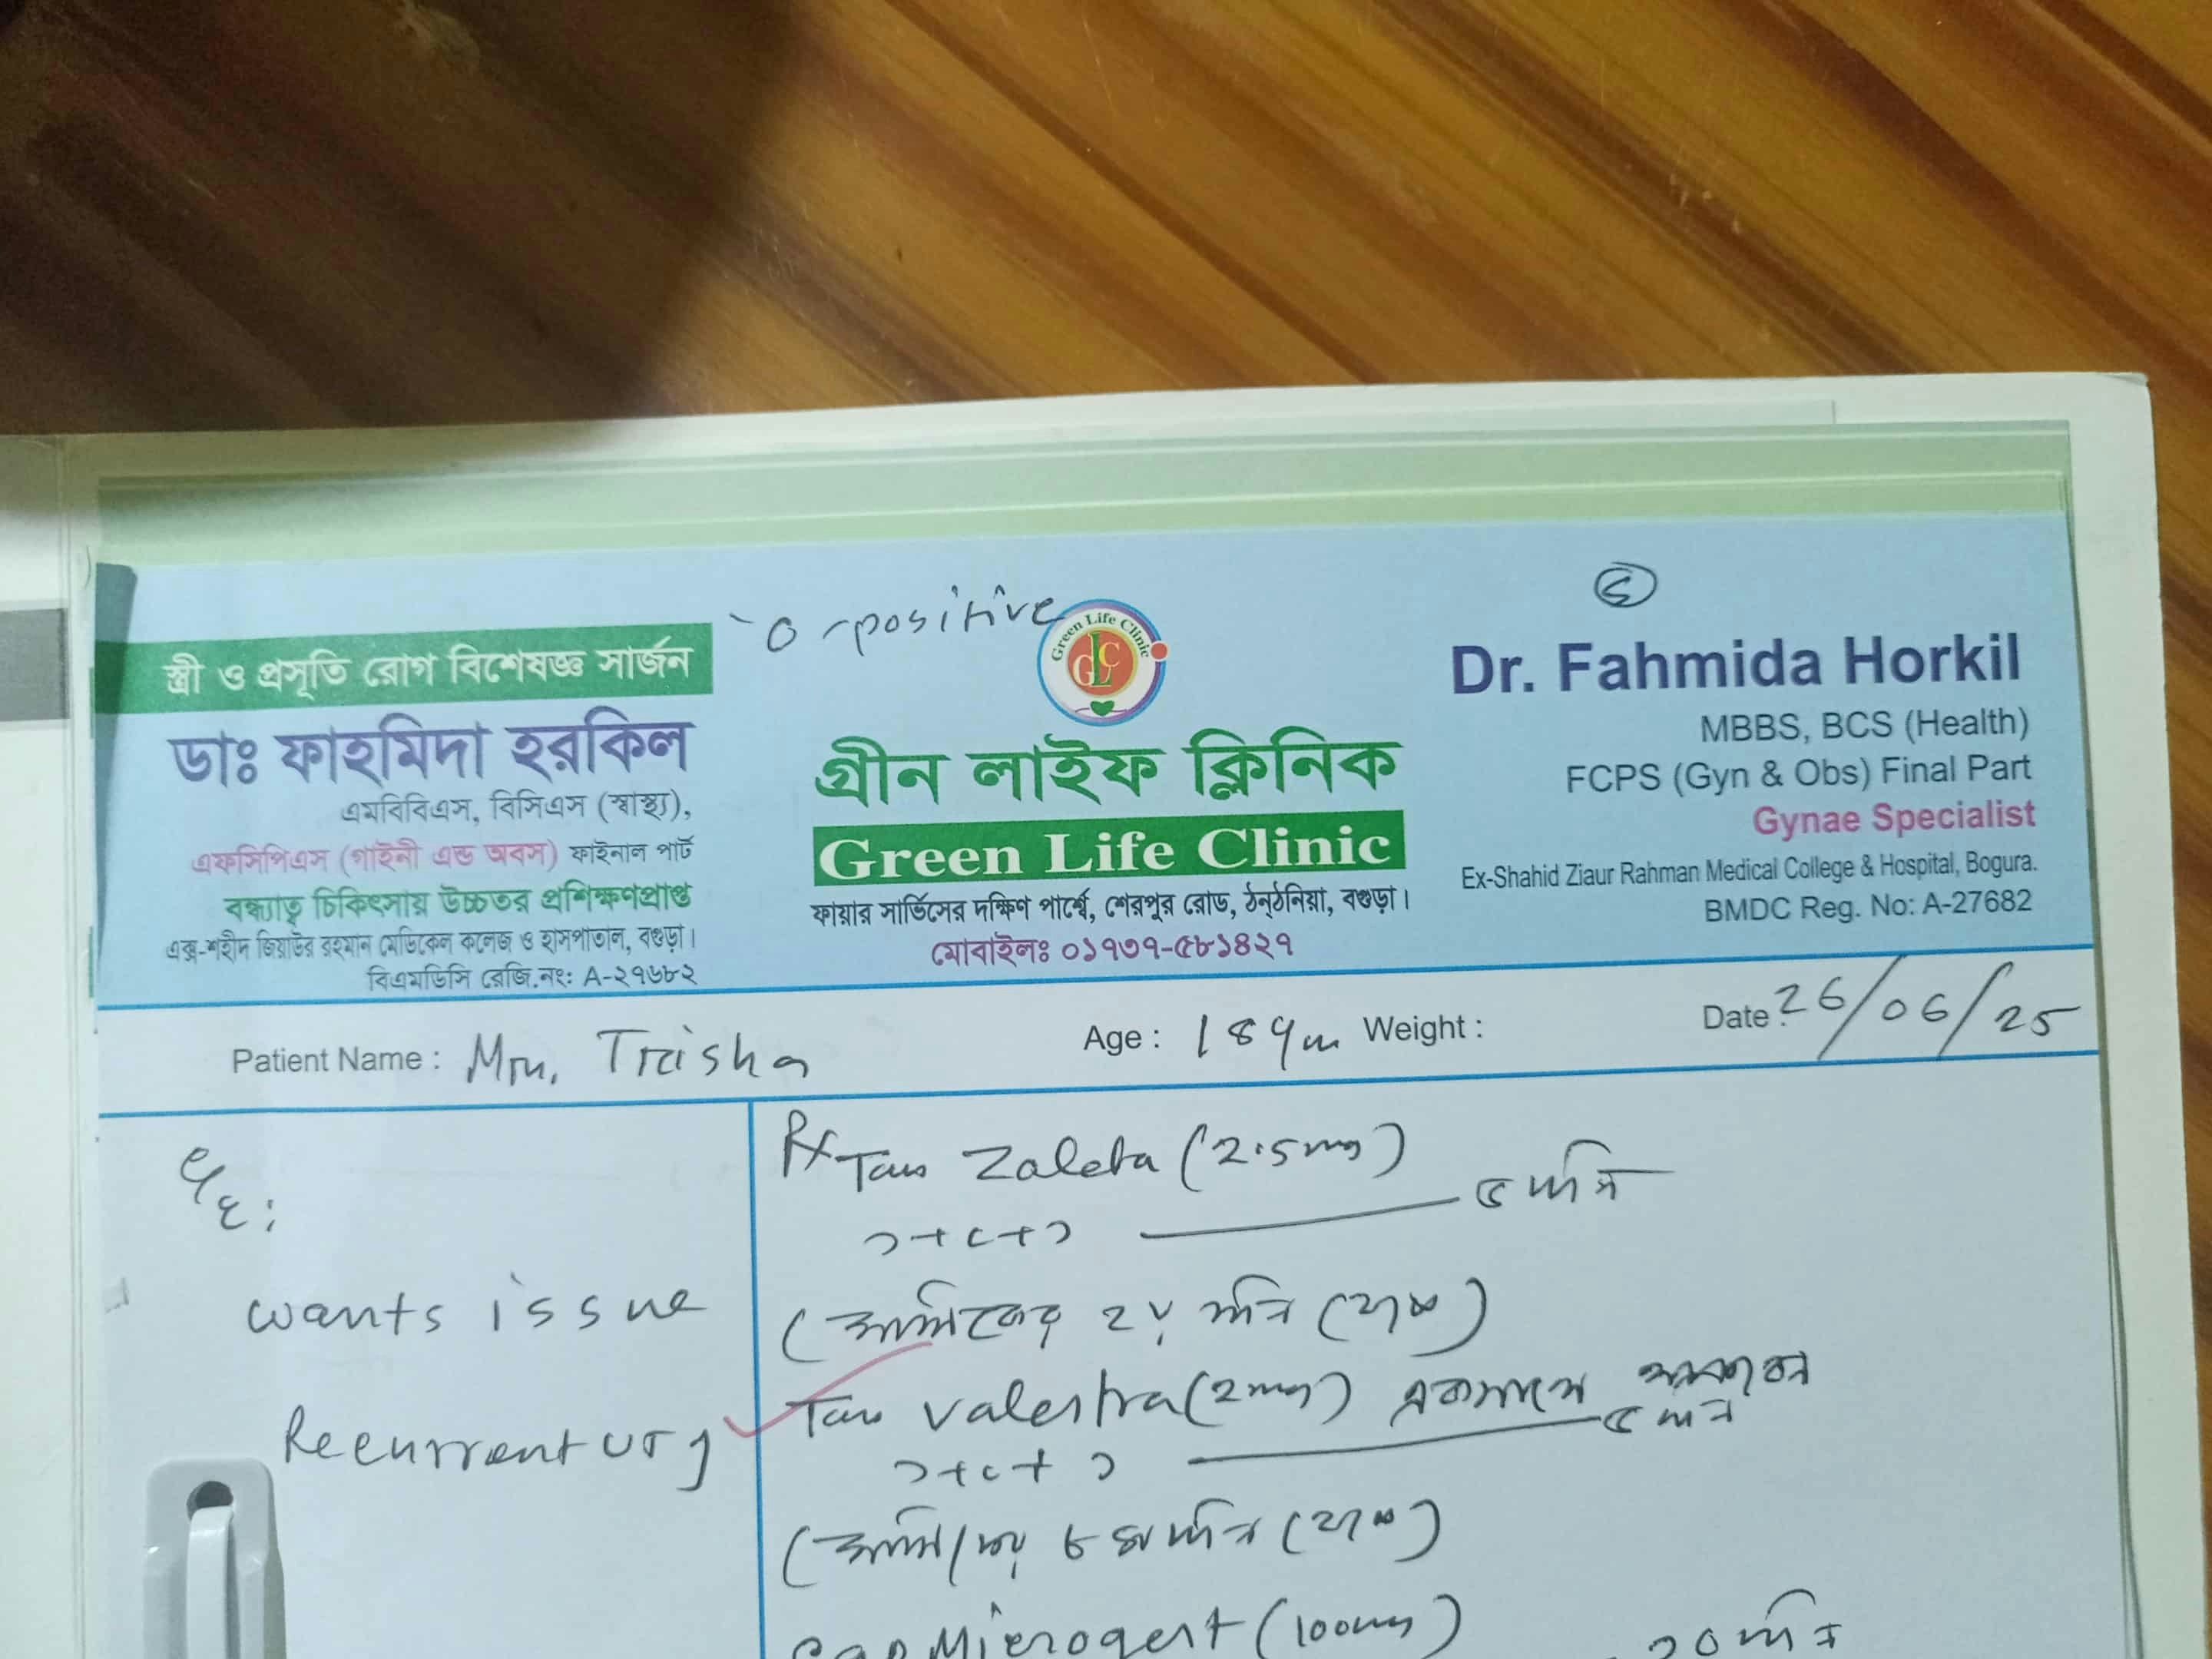 O positive
5
স্ত্রী ও প্রসূতি রোগ বিশেষজ্ঞ সার্জন
ডাঃ ফাহমিদা হরকিল
এমবিবিএস, বিসিএস (স্বাস্থ্য),
এফসিপিএস (গাইনী এন্ড অবস) ফাইনাল পার্ট
বন্ধ্যাত্ব চিকিৎসায় উচ্চতর প্রশিক্ষণপ্রাপ্ত
এক্স-শহীদ জিয়াউর রহমান মেডিকেল কলেজ ও হাসপাতাল, বগুড়া।
বিএমডিসি রেজি.নং: A-২৭৬৮২
Green Life Clinic
GLC
গ্রীন লাইফ ক্লিনিক
Green Life Clinic
ফায়ার সার্ভিসের দক্ষিণ পার্শ্বে, শেরপুর রোড, ঠন্‌ঠনিয়া, বগুড়া।
মোবাইলঃ ০১৭৩৭-৫৮১৪২৭
Dr. Fahmida Horkil
MBBS, BCS (Health)
FCPS (Gyn & Obs) Final Part
Gynae Specialist
Ex-Shahid Ziaur Rahman Medical College & Hospital, Bogura.
BMDC Reg. No: A-27682
Patient Name : Mrs. Trisha Age : 18 yrs Weight : Date : 26/06/25
wants issue
Recurrent UTI
Rx Tab Zaleta (2.5mg)
১+০+১ ৫ দিন
(মাসিকের ২য় দিন থেকে)
Tab Valestra (2mg) একসাথে
১+০+১ ৫ দিন
(মাসিকের দিন থেকে)
Cap Microgest (100mg)